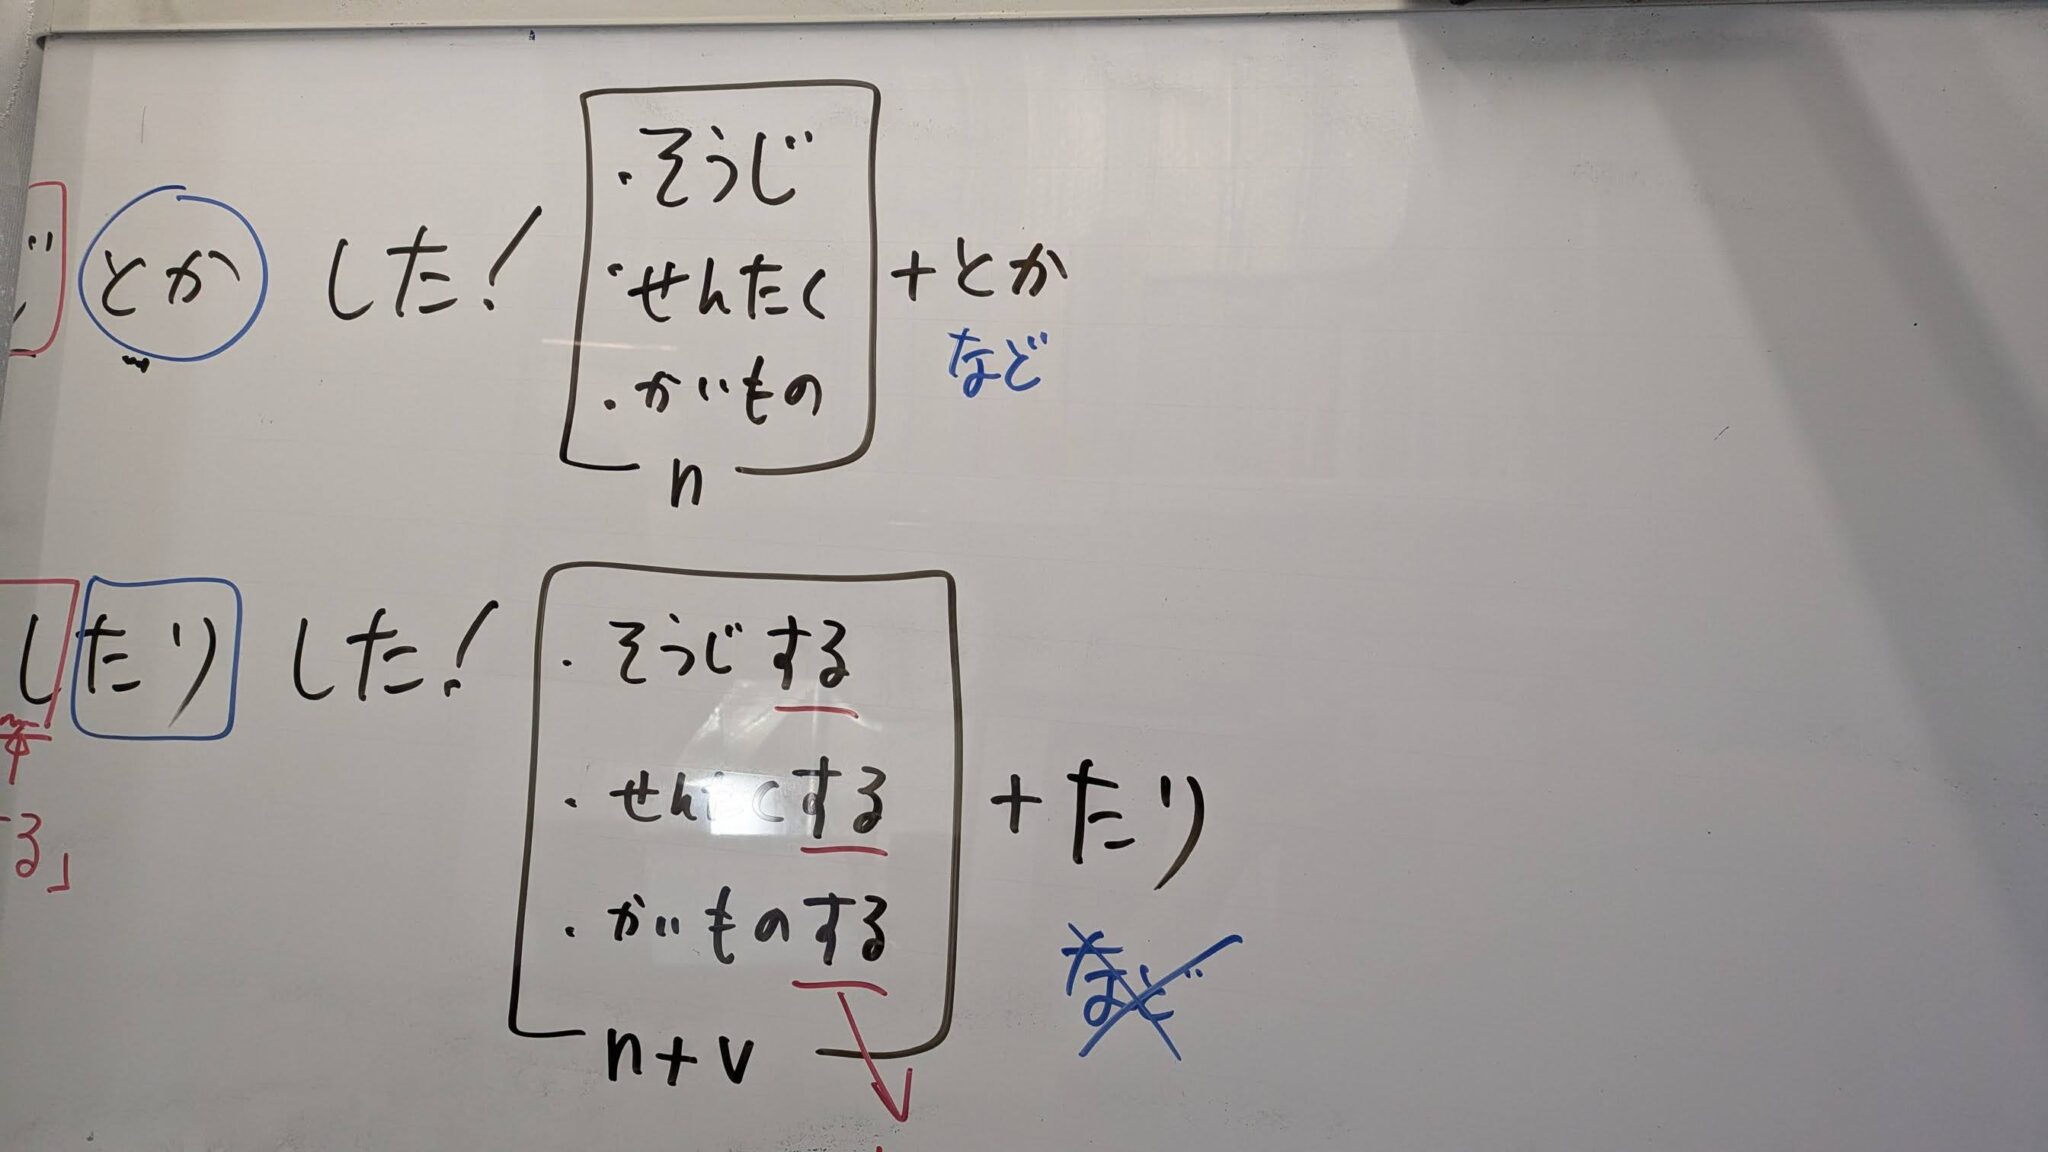 とか した!
・そうじ
・せんたく
・かいもの
n
+とか
など
したり した!
・そうじする
・せんたくする
・かいものする
n+v
+たり
など
る」